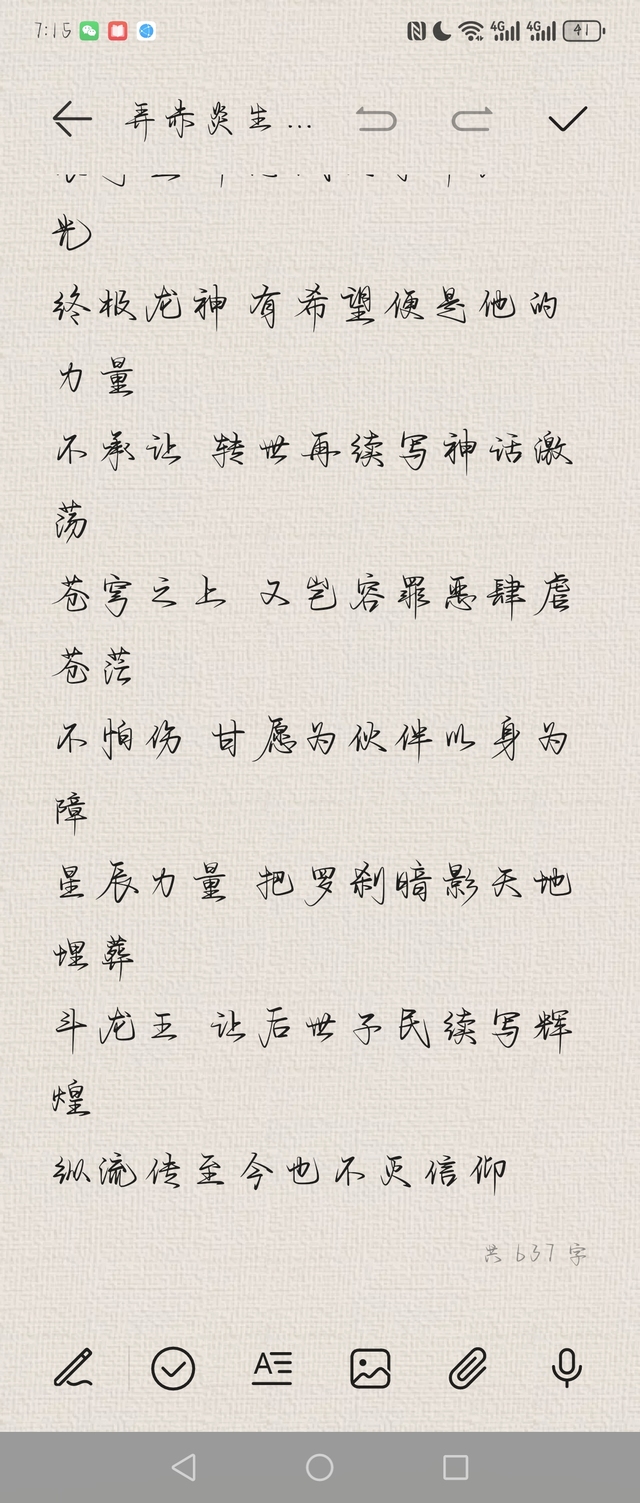 7:15
4G 4G 41
弄赤炎生...
光
终极龙神 有希望便是他的
力量
不承让 转世再续写神话激
荡
苍穹之上 又岂容罪恶肆虐
苍茫
不怕伤 甘愿为伙伴以身为
障
星辰力量 把罗刹暗影天地
埋葬
斗龙王 让后世子民续写辉
煌
纵流传至今也不灭信仰
共 637 字
A